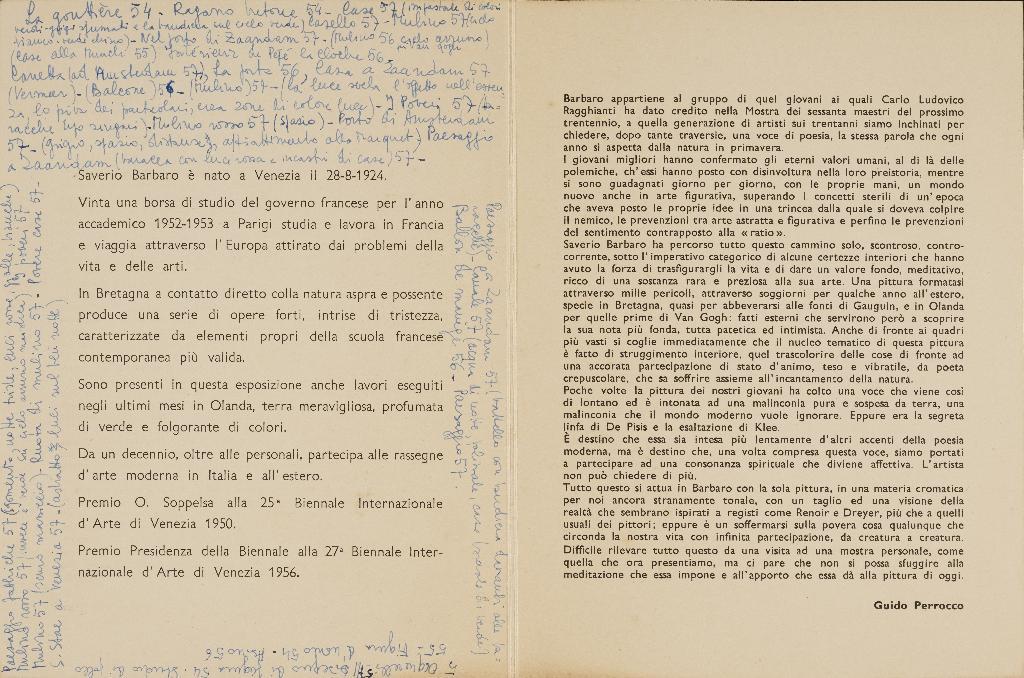 La gouttière 54 - Ragano bretone 54 - Case 57 (impastate di colori
verdi-grigi sfumati e la bandiera sul cielo verde) Casello 57 - Mulino 57 (cielo
bianco-verde chino) - Nel porto di Zaandam 57 - (Mulino 56 cielo azzurro)
(case alla Munch 55) Intérieur de Pepé la cloche 56
Carretta (ad Amsterdam 57), La porta 56, Casa a Zaandam 57
(Vermeer) - (Balcone) 56 - (Mulino) 57 - (la luce svela l'oggetto nell'essen-
za, lo priva dei particolari, crea zone di colore (luce) - I Poveri 57
- Mulino rosso 57 (spazio) - Porto di Amsterdam
57 - (grigio, spazio, distanza, Paesaggio
a Zaandam (baracca con luce rossa e incastri di case) 57 -
Saverio Barbaro è nato a Venezia il 28-8-1924.
Vinta una borsa di studio del governo francese per l'anno
accademico 1952-1953 a Parigi studia e lavora in Francia
e viaggia attraverso l'Europa attirato dai problemi della
vita e delle arti.
In Bretagna a contatto diretto colla natura aspra e possente
produce una serie di opere forti, intrise di tristezza,
caratterizzate da elementi propri della scuola francese
contemporanea più valida.
Sono presenti in questa esposizione anche lavori eseguiti
negli ultimi mesi in Olanda, terra meravigliosa, profumata
di verde e folgorante di colori.
Da un decennio, oltre alle personali, partecipa alle rassegne
d'arte moderna in Italia e all'estero.
Premio O. Soppelsa alla 25ª Biennale Internazionale
d'Arte di Venezia 1950.
Premio Presidenza della Biennale alla 27ª Biennale Inter-
nazionale d'Arte di Venezia 1956.
Paesaggio a Zaandam 57 (battello con bandiera davanti alle fa-
Canale 57
Ballon de manège 56 - Paesaggio 57 -
Paesaggio fabbriche 57
Mulino rosso 57
Mulino 57 Ruota di mulino 57 - Povere case 57 -
S. Stae a Venezia 57 -
57 Disegno di figura 54 - Studio di
55 - Figura d'uomo 54 - 56
Barbaro appartiene al gruppo di quei giovani ai quali Carlo Ludovico
Ragghianti ha dato credito nella Mostra dei sessanta maestri del prossimo
trentennio, a quella generazione di artisti sui trentanni siamo inchinati per
chiedere, dopo tante traversie, una voce di poesia, la stessa parola che ogni
anno si aspetta dalla natura in primavera.
I giovani migliori hanno confermato gli eterni valori umani, al di là delle
polemiche, ch'essi hanno posto con disinvoltura nella loro preistoria, mentre
si sono guadagnati giorno per giorno, con le proprie mani, un mondo
nuovo anche in arte figurativa, superando i concetti sterili di un'epoca
che aveva posto le proprie idee in una trincea dalla quale si doveva colpire
il nemico, le prevenzioni tra arte astratta e figurativa e perfino le prevenzioni
del sentimento contrapposto alla « ratio ».
Saverio Barbaro ha percorso tutto questo cammino solo, scontroso, contro-
corrente, sotto l'imperativo categorico di alcune certezze interiori che hanno
avuto la forza di trasfigurargli la vita e di dare un valore fondo, meditativo,
ricco di una sostanza rara e preziosa alla sua arte. Una pittura formatasi
attraverso mille pericoli, attraverso soggiorni per qualche anno all'estero,
specie in Bretagna, quasi per abbeverarsi alle fonti di Gauguin, e in Olanda
per quelle prime di Van Gogh: fatti esterni che servirono però a scoprire
la sua nota più fonda, tutta patetica ed intimista. Anche di fronte ai quadri
più vasti si coglie immediatamente che il nucleo tematico di questa pittura
è fatto di struggimento interiore, quel trascolorire delle cose di fronte ad
una accorata partecipazione di stato d'animo, teso e vibratile, da poeta
crepuscolare, che sa soffrire assieme all'incantamento della natura.
Poche volte la pittura dei nostri giovani ha colto una voce che viene così
di lontano ed è intonata ad una malinconia pura e sospesa da terra, una
malinconia che il mondo moderno vuole ignorare. Eppure era la segreta
linfa di De Pisis e la esaltazione di Klee.
È destino che essa sia intesa più lentamente d'altri accenti della poesia
moderna, ma è destino che, una volta compresa questa voce, siamo portati
a partecipare ad una consonanza spirituale che diviene affettiva. L'artista
non può chiedere di più.
Tutto questo si attua in Barbaro con la sola pittura, in una materia cromatica
per noi ancora stranamente tonale, con un taglio ed una visione della
realtà che sembrano ispirati a registi come Renoir e Dreyer, più che a quelli
usuali dei pittori; eppure è un soffermarsi sulla povera cosa qualunque che
circonda la nostra vita con infinita partecipazione, da creatura a creatura.
Difficile rilevare tutto questo da una visita ad una mostra personale, come
quella che ora presentiamo, ma ci pare che non si possa sfuggire alla
meditazione che essa impone e all'apporto che essa dà alla pittura di oggi.
Guido Perrocco